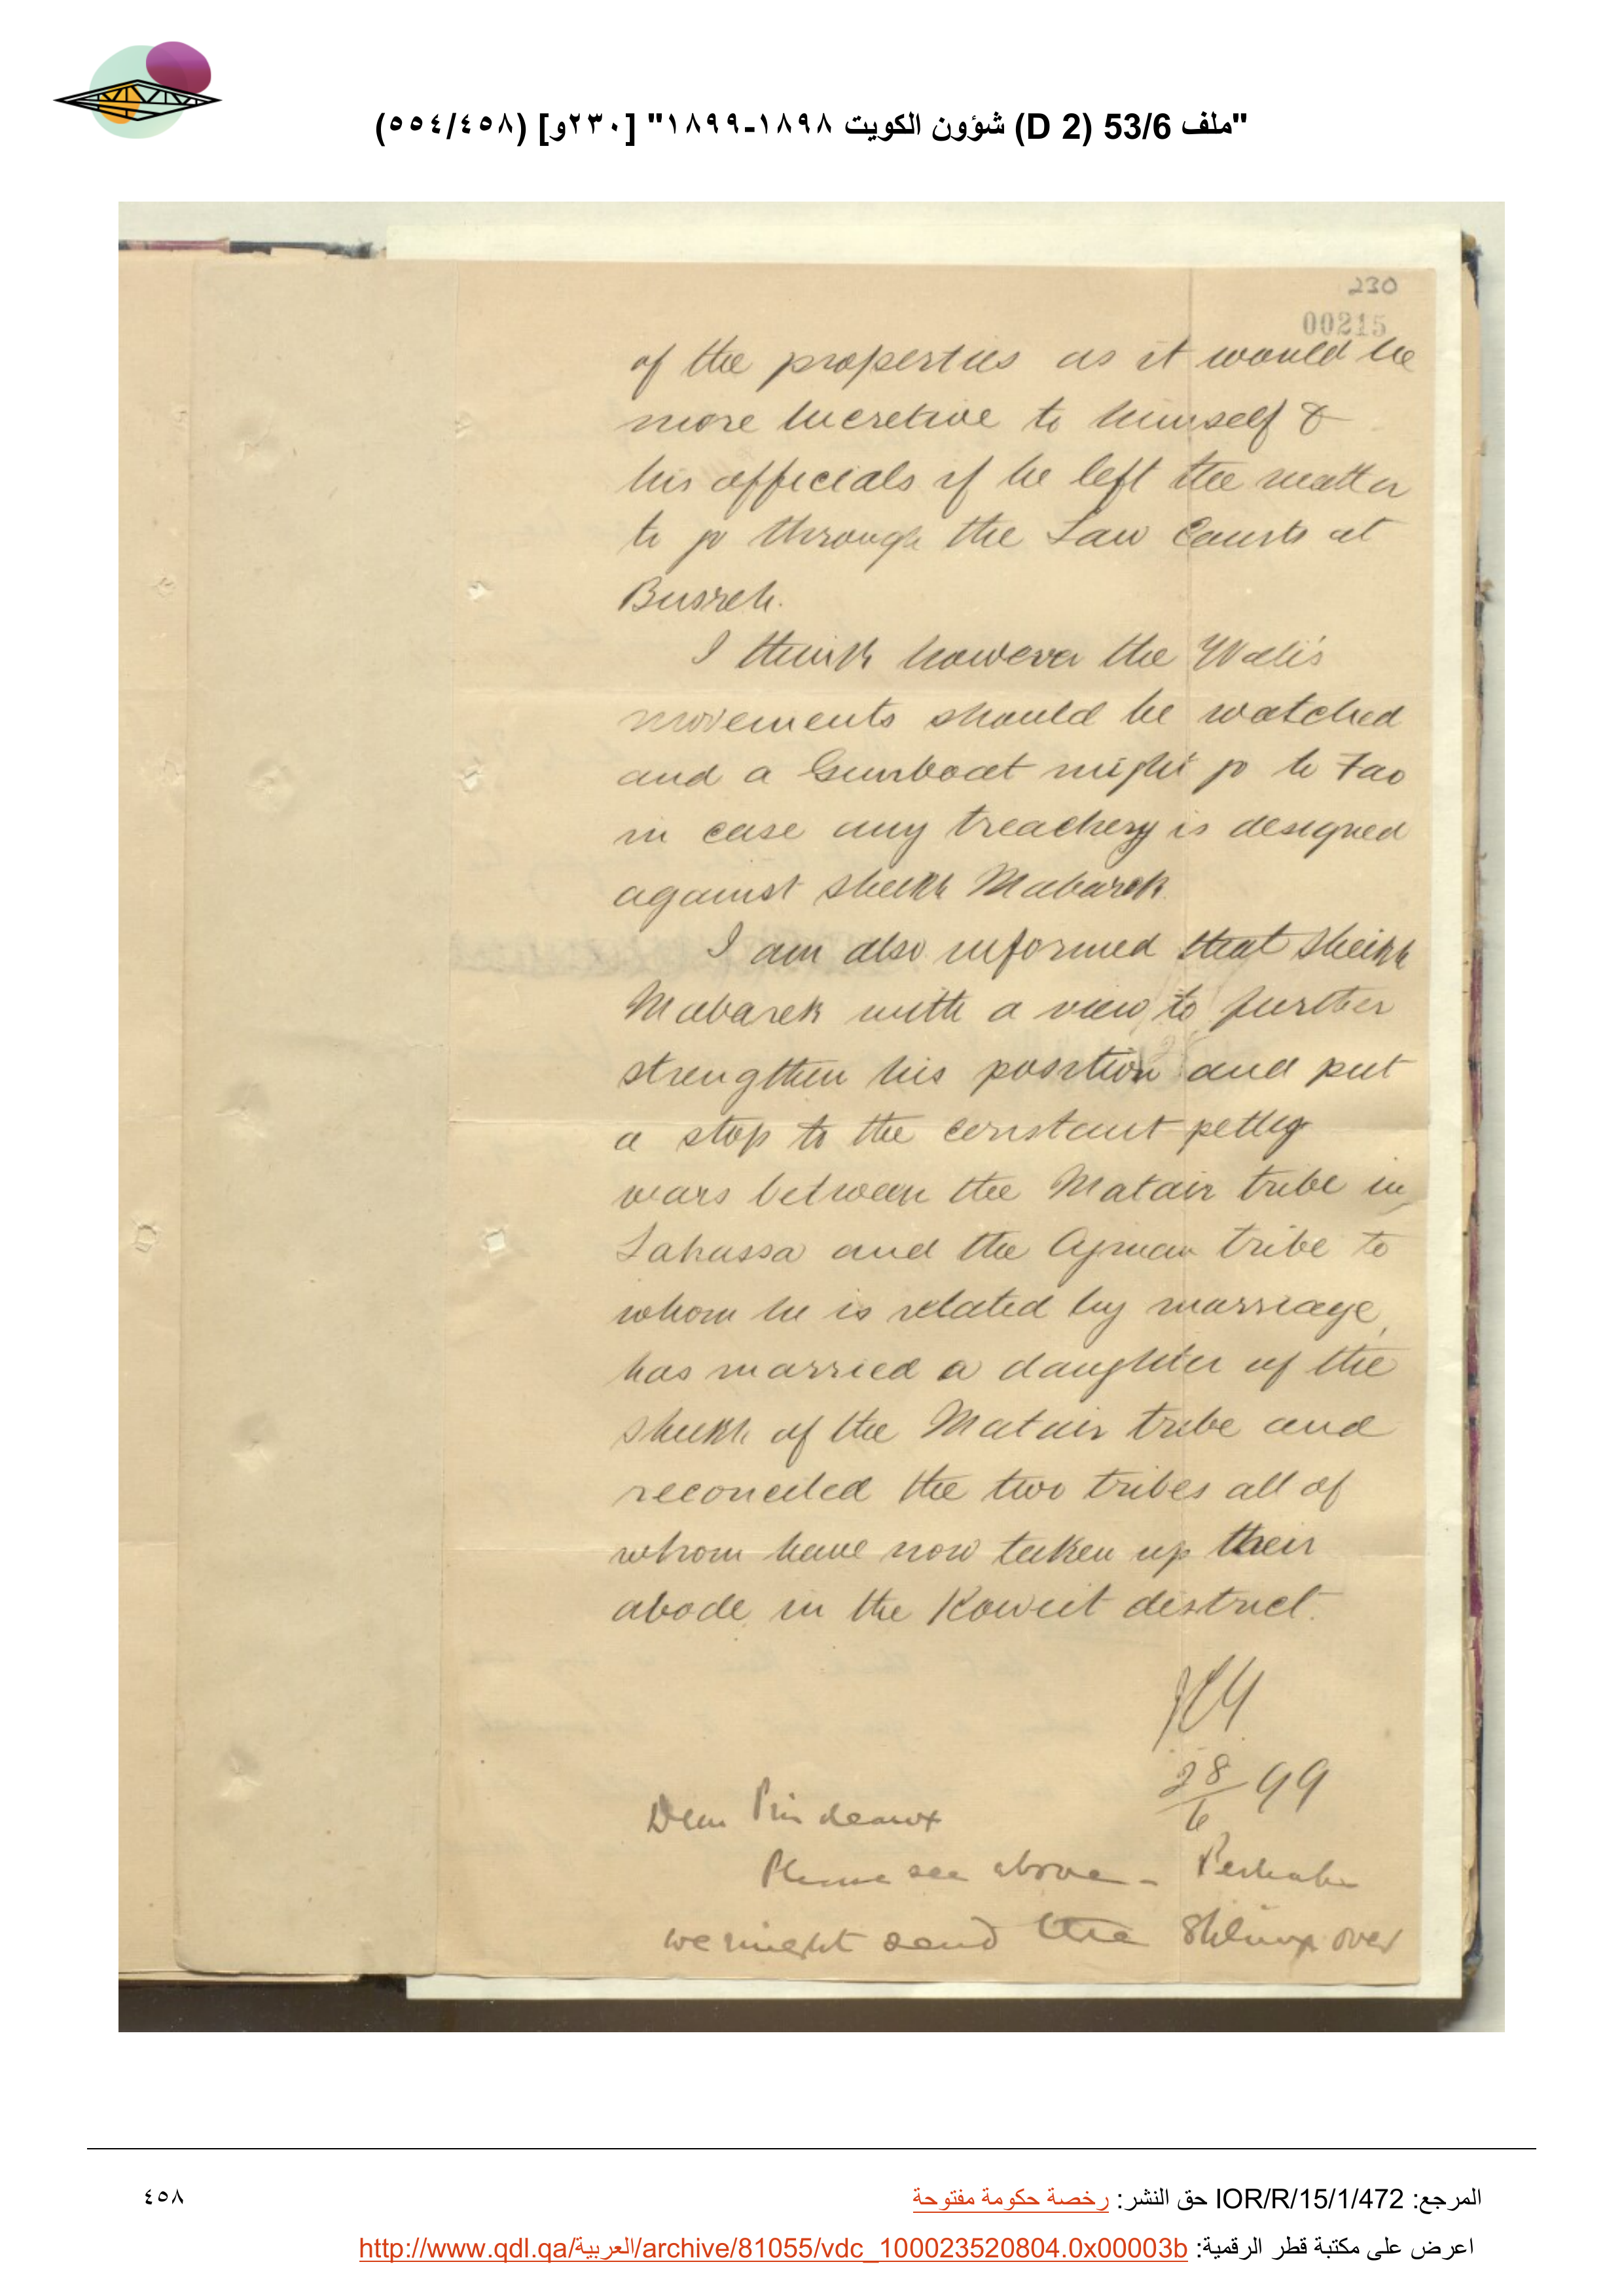 "ملف 53/6 (D 2) شؤون الكويت ١٨٩٨-١٨٩٩" [٢٣٠و] (٥٥٤/٤٥٨)
230
00215
of the properties as it would be
more lucretive to himself &
his officials if he left the matter
to go through the Law Courts at
Busreh.
I think however the Wali's
movements should be watched
and a Gunboat might go to Fao
in case any treachery is designed
against Sheikh Mabarek.
I am also informed that Sheikh
Mabarek with a view to further
strengthen his position and put
a stop to the constant petty
wars between the Matair tribe in
Lahassa and the Ajman tribe to
whom he is related by marriage,
has married a daughter of the
Sheikh of the Matair tribe and
reconciled the two tribes all of
whom have now taken up their
abode in the Koweit district.
28/6 99
Dear Prideaux
Please see above - Perhaps
we might send the Sphinx over
المرجع: IOR/R/15/1/472 حق النشر: رخصة حكومة مفتوحة
٤٥٨
اعرض على مكتبة قطر الرقمية: http://www.qdl.qa/العربية/archive/81055/vdc_100023520804.0x00003b